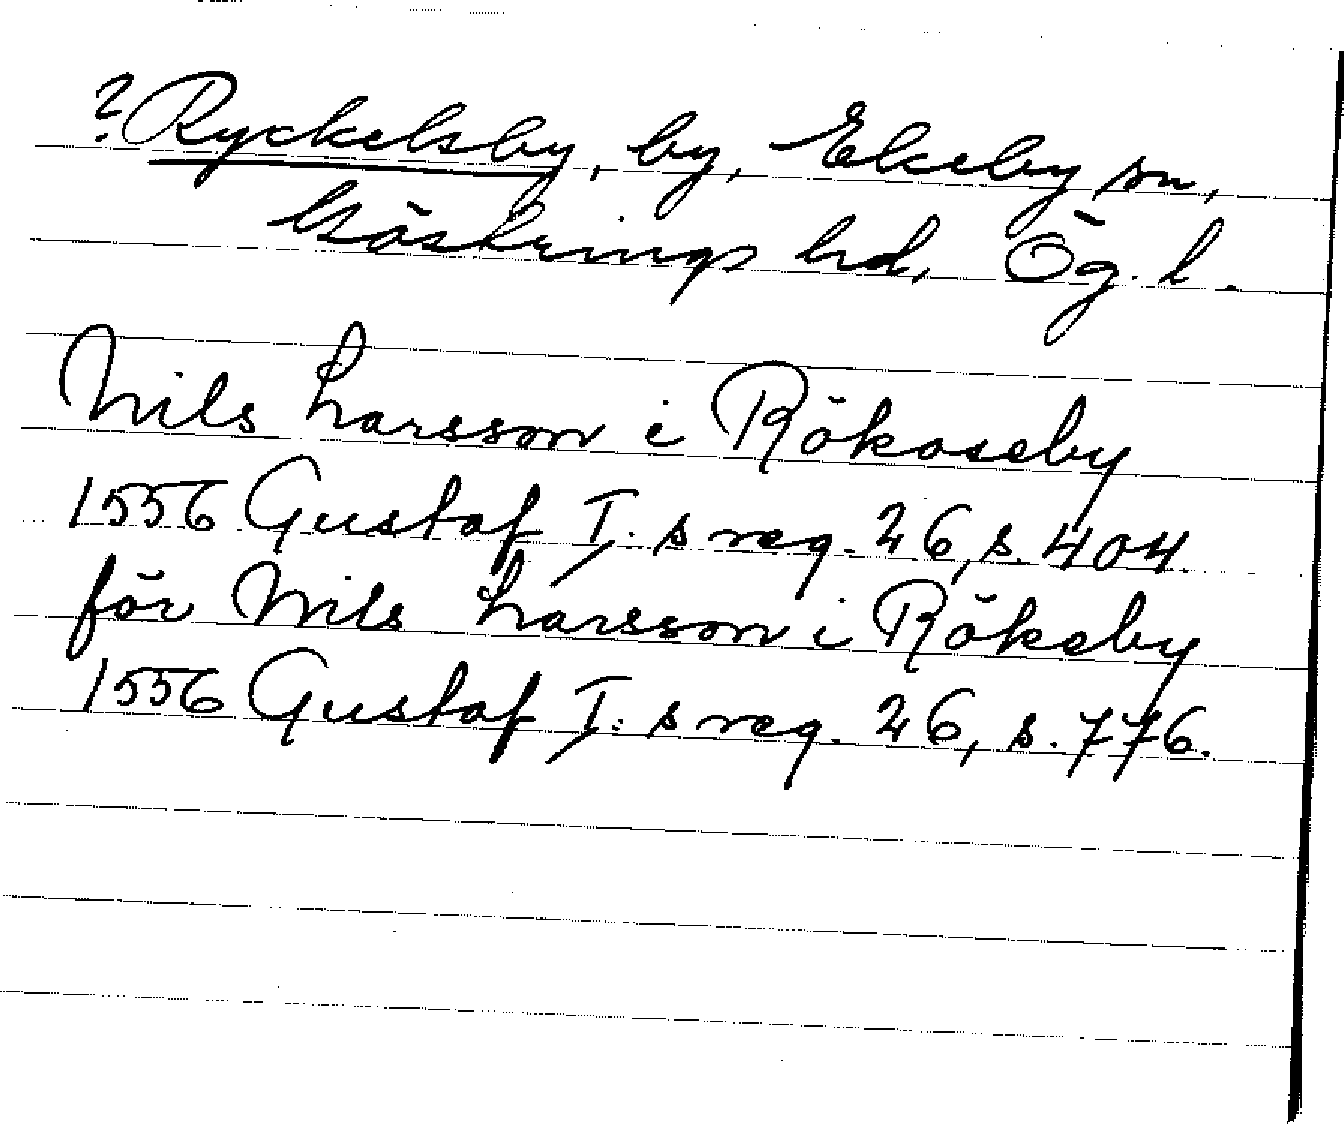 ? Ryckelsby, by, Ekeby sn,
Göstrings hd, Ög. l.
Nils Larsson i Rökoseby
1556 Gustaf I. s reg. 26, s. 404
för Nils Larsson i Rökeby
1556 Gustaf I: s reg. 26, s. 776.